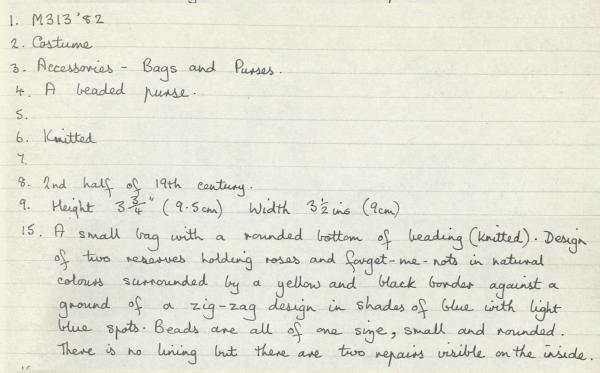 1. M313'82
2. Costume
3. Accessories - Bags and Purses.
4. A beaded purse.
5.
6. Knitted
7.
8. 2nd half of 19th century.
9. Height 3 3/4" (9.5cm) Width 3 1/2 ins (9cm)
15. A small bag with a rounded bottom of beading (knitted). Design
of two reserves holding roses and forget-me-nots in natural
colours surrounded by a yellow and black border against a
ground of a zig-zag design in shades of blue with light
blue spots. Beads are all of one size, small and rounded.
There is no lining but there are two repairs visible on the inside.